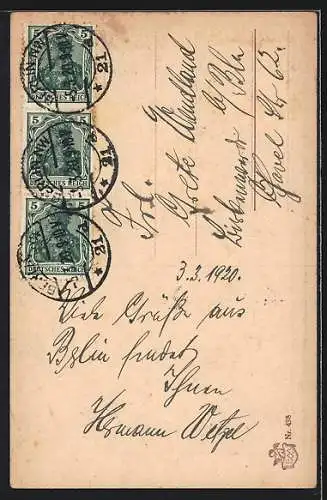 5
DEUTSCHES REICH
5
DEUTSCHES REICH
5
DEUTSCHES REICH
BERLIN NW
21
Frl.
Grete Wendland
b/Bln
Havel Str 62.
3.3.1920.
Viele Grüße aus
Berlin sendet
Ihnen
Hermann Wetzel
Nr. 438